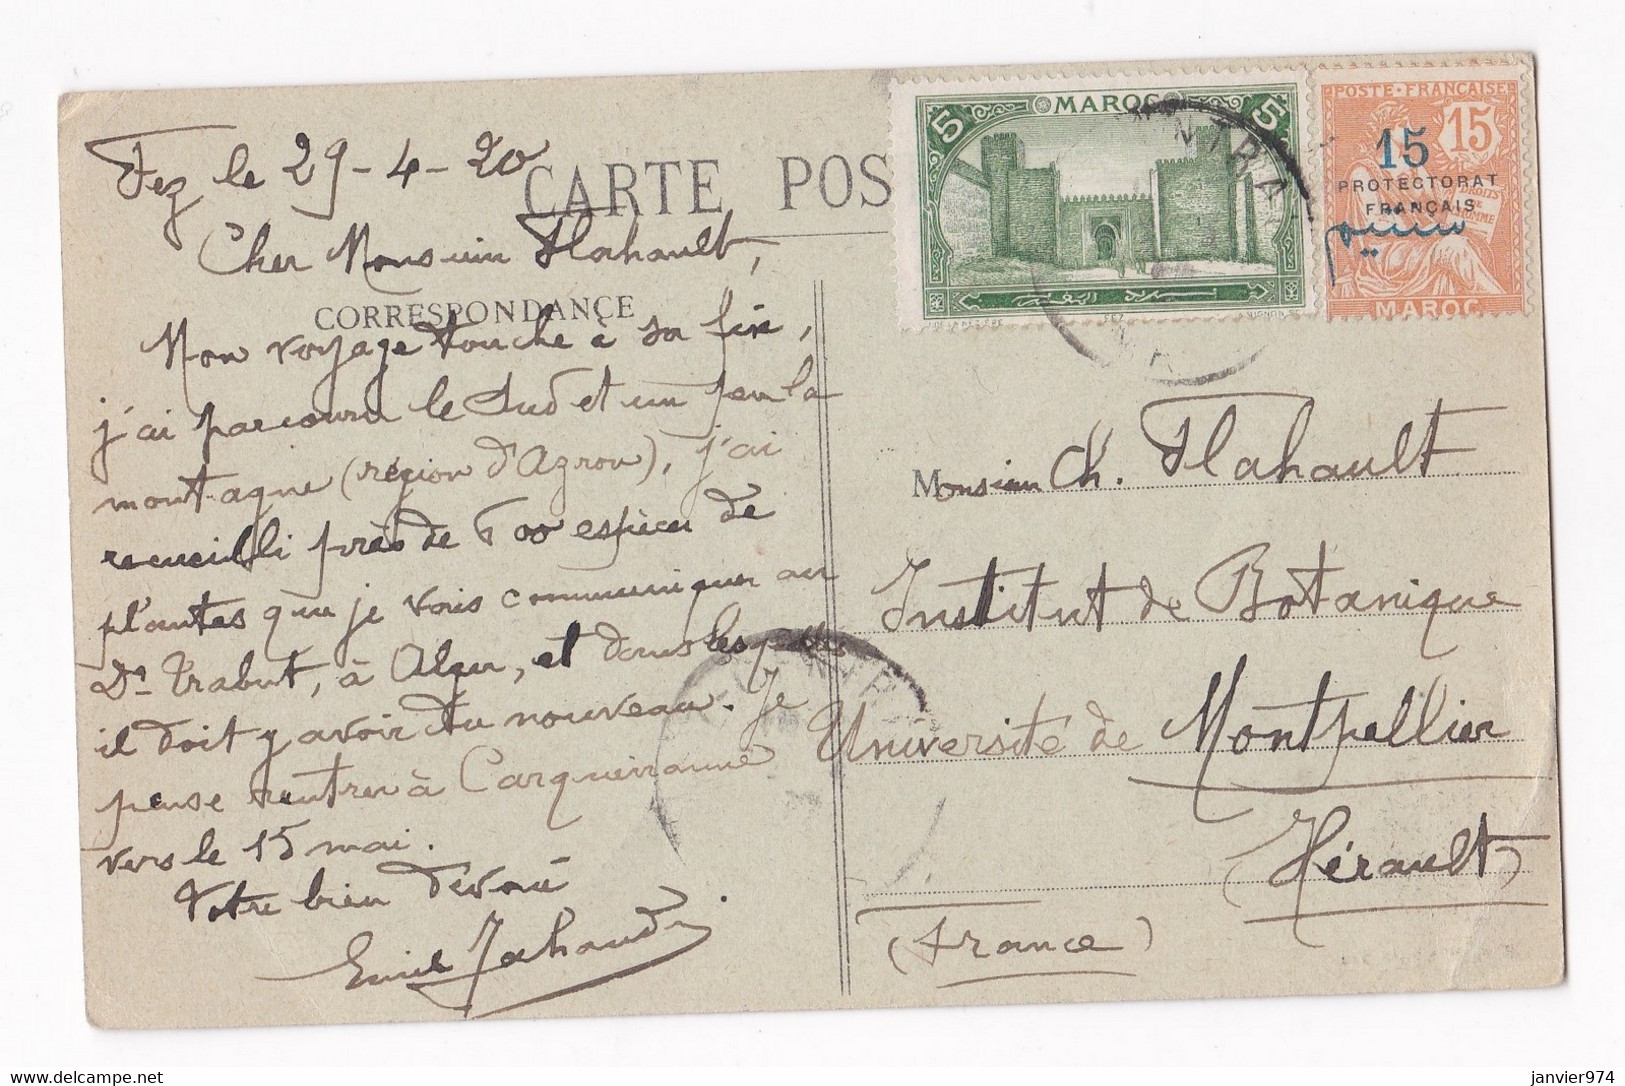 Fez le 29-4-20
CARTE POS
Cher Monsieur Flahault,
CORRESPONDANCE
Mon voyage touche à sa fin,
j'ai parcouru le Sud et un peu la
montagne (région d'Azrou), j'ai
recueilli près de 600 espèces de
plantes que je vais communiquer au
Dr Trabut, à Alger, et dans lesquelles
il doit y avoir du nouveau. Je
pense rentrer à Carqueiranne
vers le 15 mai.
Votre bien dévoué
Emile Jahandi
MAROC
5 5
FEZ
VIGNON
POSTE FRANÇAISE
15 15
PROTECTORAT
FRANÇAIS
DROITS
DE
L'HOMME
MAROC
Monsieur Ch. Flahault
Institut de Botanique
Université de Montpellier
Hérault
(France)
janvier974